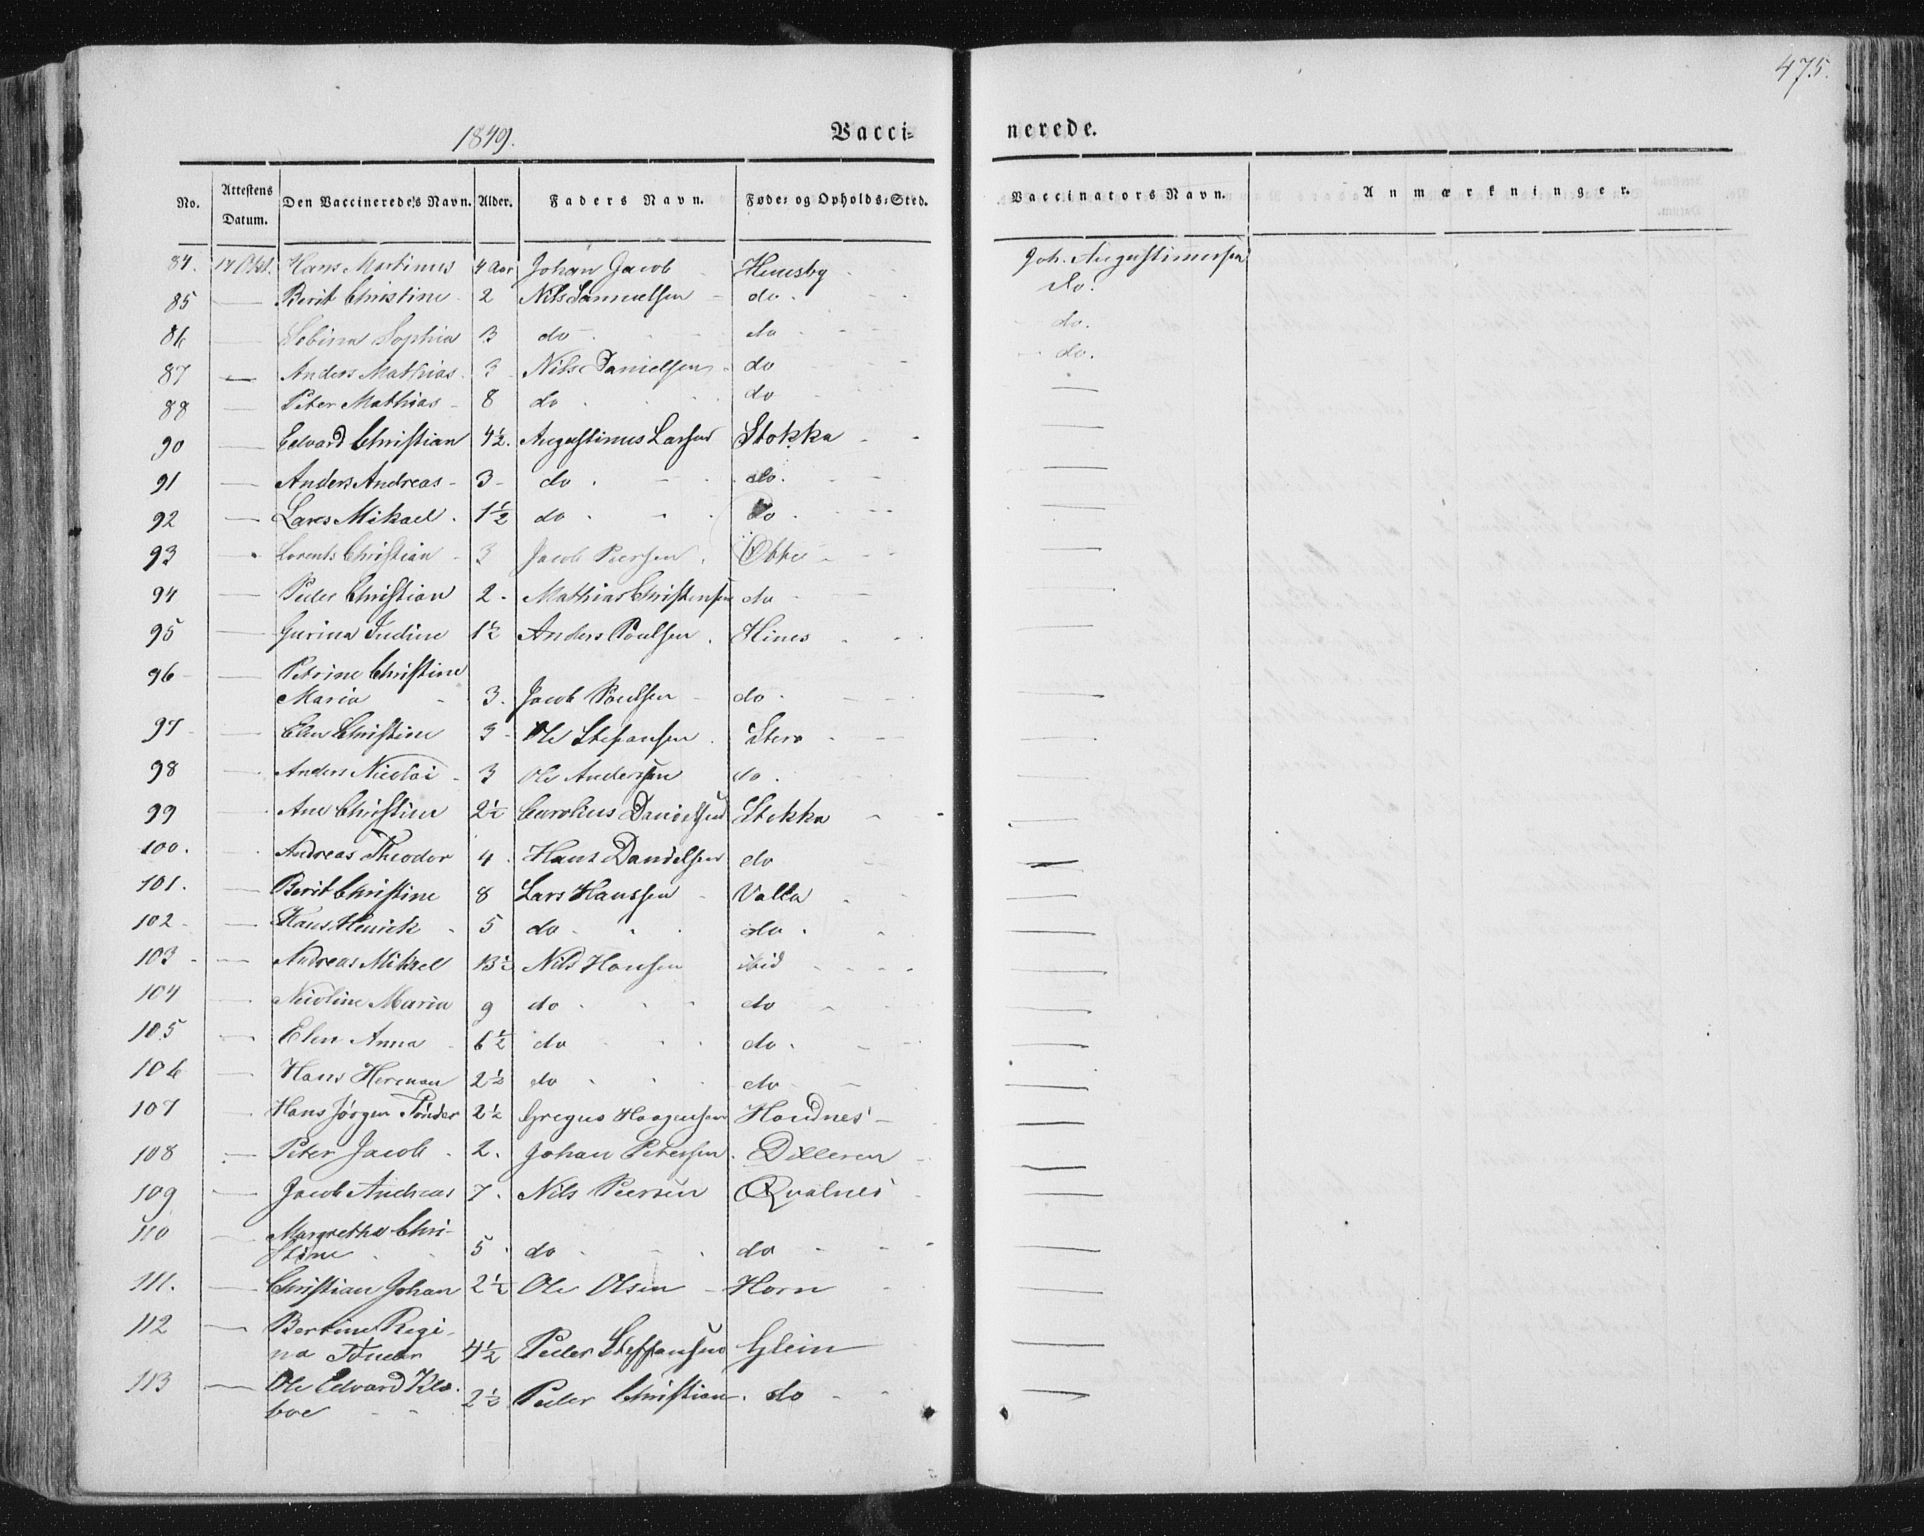 475.
1849. Vacci= nerede.
No. Attestens Datum. Den Vaccineredes Navn. Alder. Faders Navn. Føde= og Opholds=Sted. Vaccinators Navn. Anmærkninger.
84. 14 Hans Martinus 4 Aar Johan Jacob Huusby Joh. Augustinussen
85 — Berit Christine 2 Nils Samuelsen do. do.
86 — Sophia 3 do do do.
87 — Anders Mathias 3 Nils Danielsen do do.
88 — Peter Mathias 8 do do —
90 — Edvard Christian 4½. Augustinus Larsen Stokka —
91 — Anders Andreas 3 do. do. —
92 — Lars Mikael 1½ do do —
93 Lorents Christian 3 Jacob Peersen —
94 — Peder Christian 2 Mathias Christensen do —
95 — Gurina Indine 1½ Anders Poulsen —
96 — Petrine Christine
Maria 3. Jacob Poulsen do —
97 — Elen Christine 3 Ole Stefansen —
98 — Anders Nicolai 3 Ole Anderssen do —
99 — Ane Christine 2½ Carolius Danielsen Stokka —
100. — Andreas Theodor 4 Hans Danielsen do —
101. — Berit Christine 8 Lars Hanssen Valla —
102 — Hans Henrick 5 do do —
103 — Andreas Mikael 13½ Nils Hansen ibid —
104 — Nicoline Maria 9 do do —
105 — Elen Anna 6½ do do. —
106 — Hans Herman 2½ do do —
107 — Hans Jørgen Tønder 2½ Gregus Haagensen —
108 — Peter Jacob 2. Johan Petersen —
109 — Jacob Andreas 7. Nils Peersen Qvalnes —
110 — Margrethe Chri-
stine 5 do do —
111. — Christian Johan 2½ Ole Olsen Horn —
112 — Bertine Regi-
na 4½ Peder Steffensen Glein —
113 — Ole Edvard Klæ-
boe 2½ Peder Christian do —